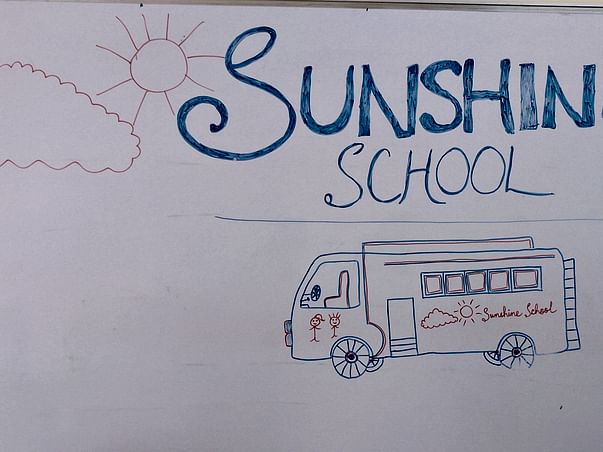 SUNSHIN
SCHOOL
Sunshine School